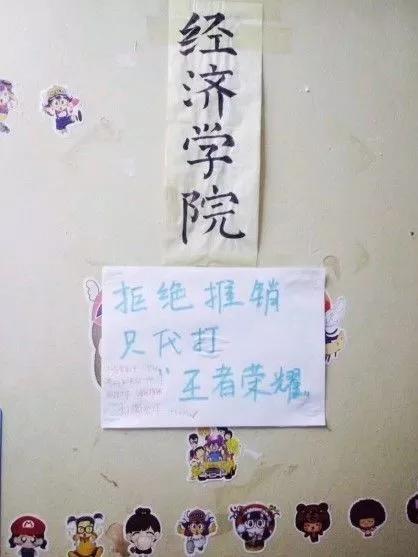 经济学院
拒绝推销
只代打
“王者荣耀”